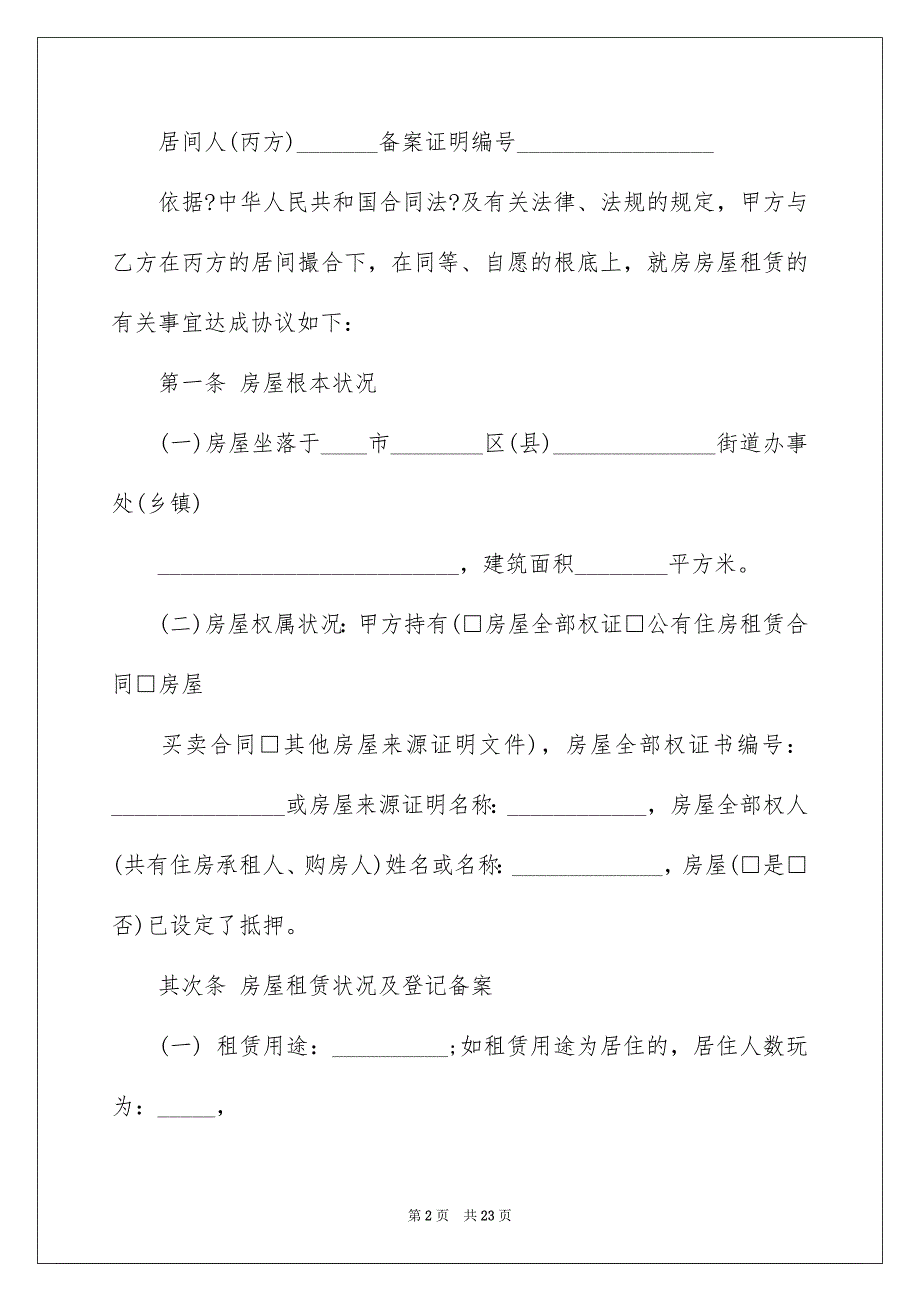 居间人(丙方)_______备案证明编号_________________
依据?中华人民共和国合同法?及有关法律、法规的规定，甲方与
乙方在丙方的居间撮合下，在同等、自愿的根底上，就房房屋租赁的
有关事宜达成协议如下：
第一条 房屋根本状况
(一)房屋坐落于____市________区(县)______________街道办事
处(乡镇)
__________________________，建筑面积________平方米。
(二)房屋权属状况：甲方持有(□房屋全部权证□公有住房租赁合
同□房屋
买卖合同□其他房屋来源证明文件)，房屋全部权证书编号：
_______________或房屋来源证明名称：____________，房屋全部权人
(共有住房承租人、购房人)姓名或名称：_____________，房屋(□是□
否)已设定了抵押。
其次条 房屋租赁状况及登记备案
(一) 租赁用途：__________;如租赁用途为居住的，居住人数玩
为：_____，
第 2 页 共 23 页